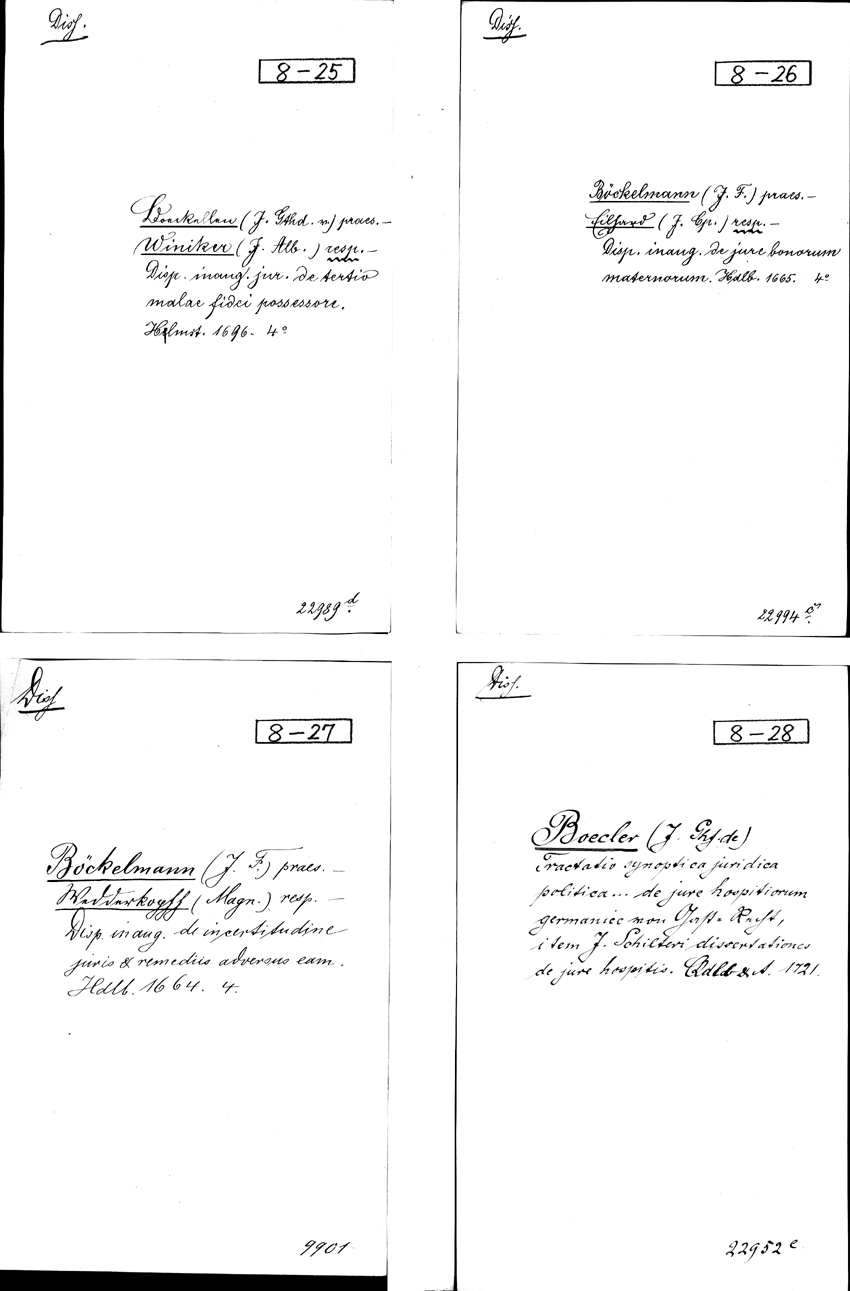 Diss.
8-25
Boeckellen (J. Gthd. v.) praes. –
Winiker (J. Alb.) resp. –
Disp. inaug. jur. de tertio
malae fidei possessore.
Helmst. 1696. 4°
22989 d.
Diss.
8-26
Böckelmann (J. F.) praes. –
Eilhard (J. Cp.) resp. –
Disp. inaug. de jure bonorum
maternorum. Hdlb. 1665. 4°
22994
Diss
8-27
Böckelmann (J. F.) praes. –
Wedderkopff (Magn.) resp. –
Disp. inaug. de incertitudine
juris & remediis adversus eam.
Hdlb. 1664. 4.
9901
Diss.
8-28
Boecler (J. de)
Tractatio synoptica juridica
politica... de jure hospitiorum
germanice von Gast-Recht,
item J. Schilteri dissertationes
de jure hospitis. & A. 1721.
22952 e